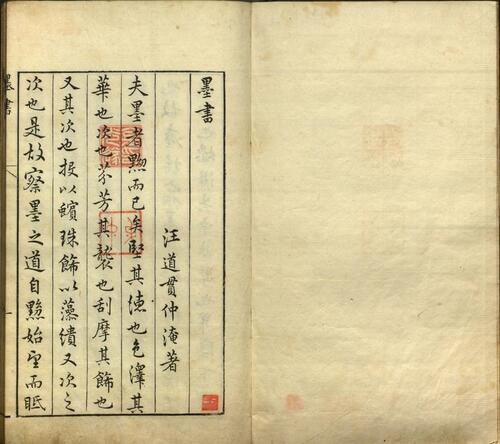 墨書
汪道貫仲淹著
夫墨者黝而已矣堅其德也色澤其
華也次也芬芳其襲也刮摩其飾也
又其次也投以蠙珠飾以藻繢又次之
次也是故察墨之道自黝始望而眡
墨書